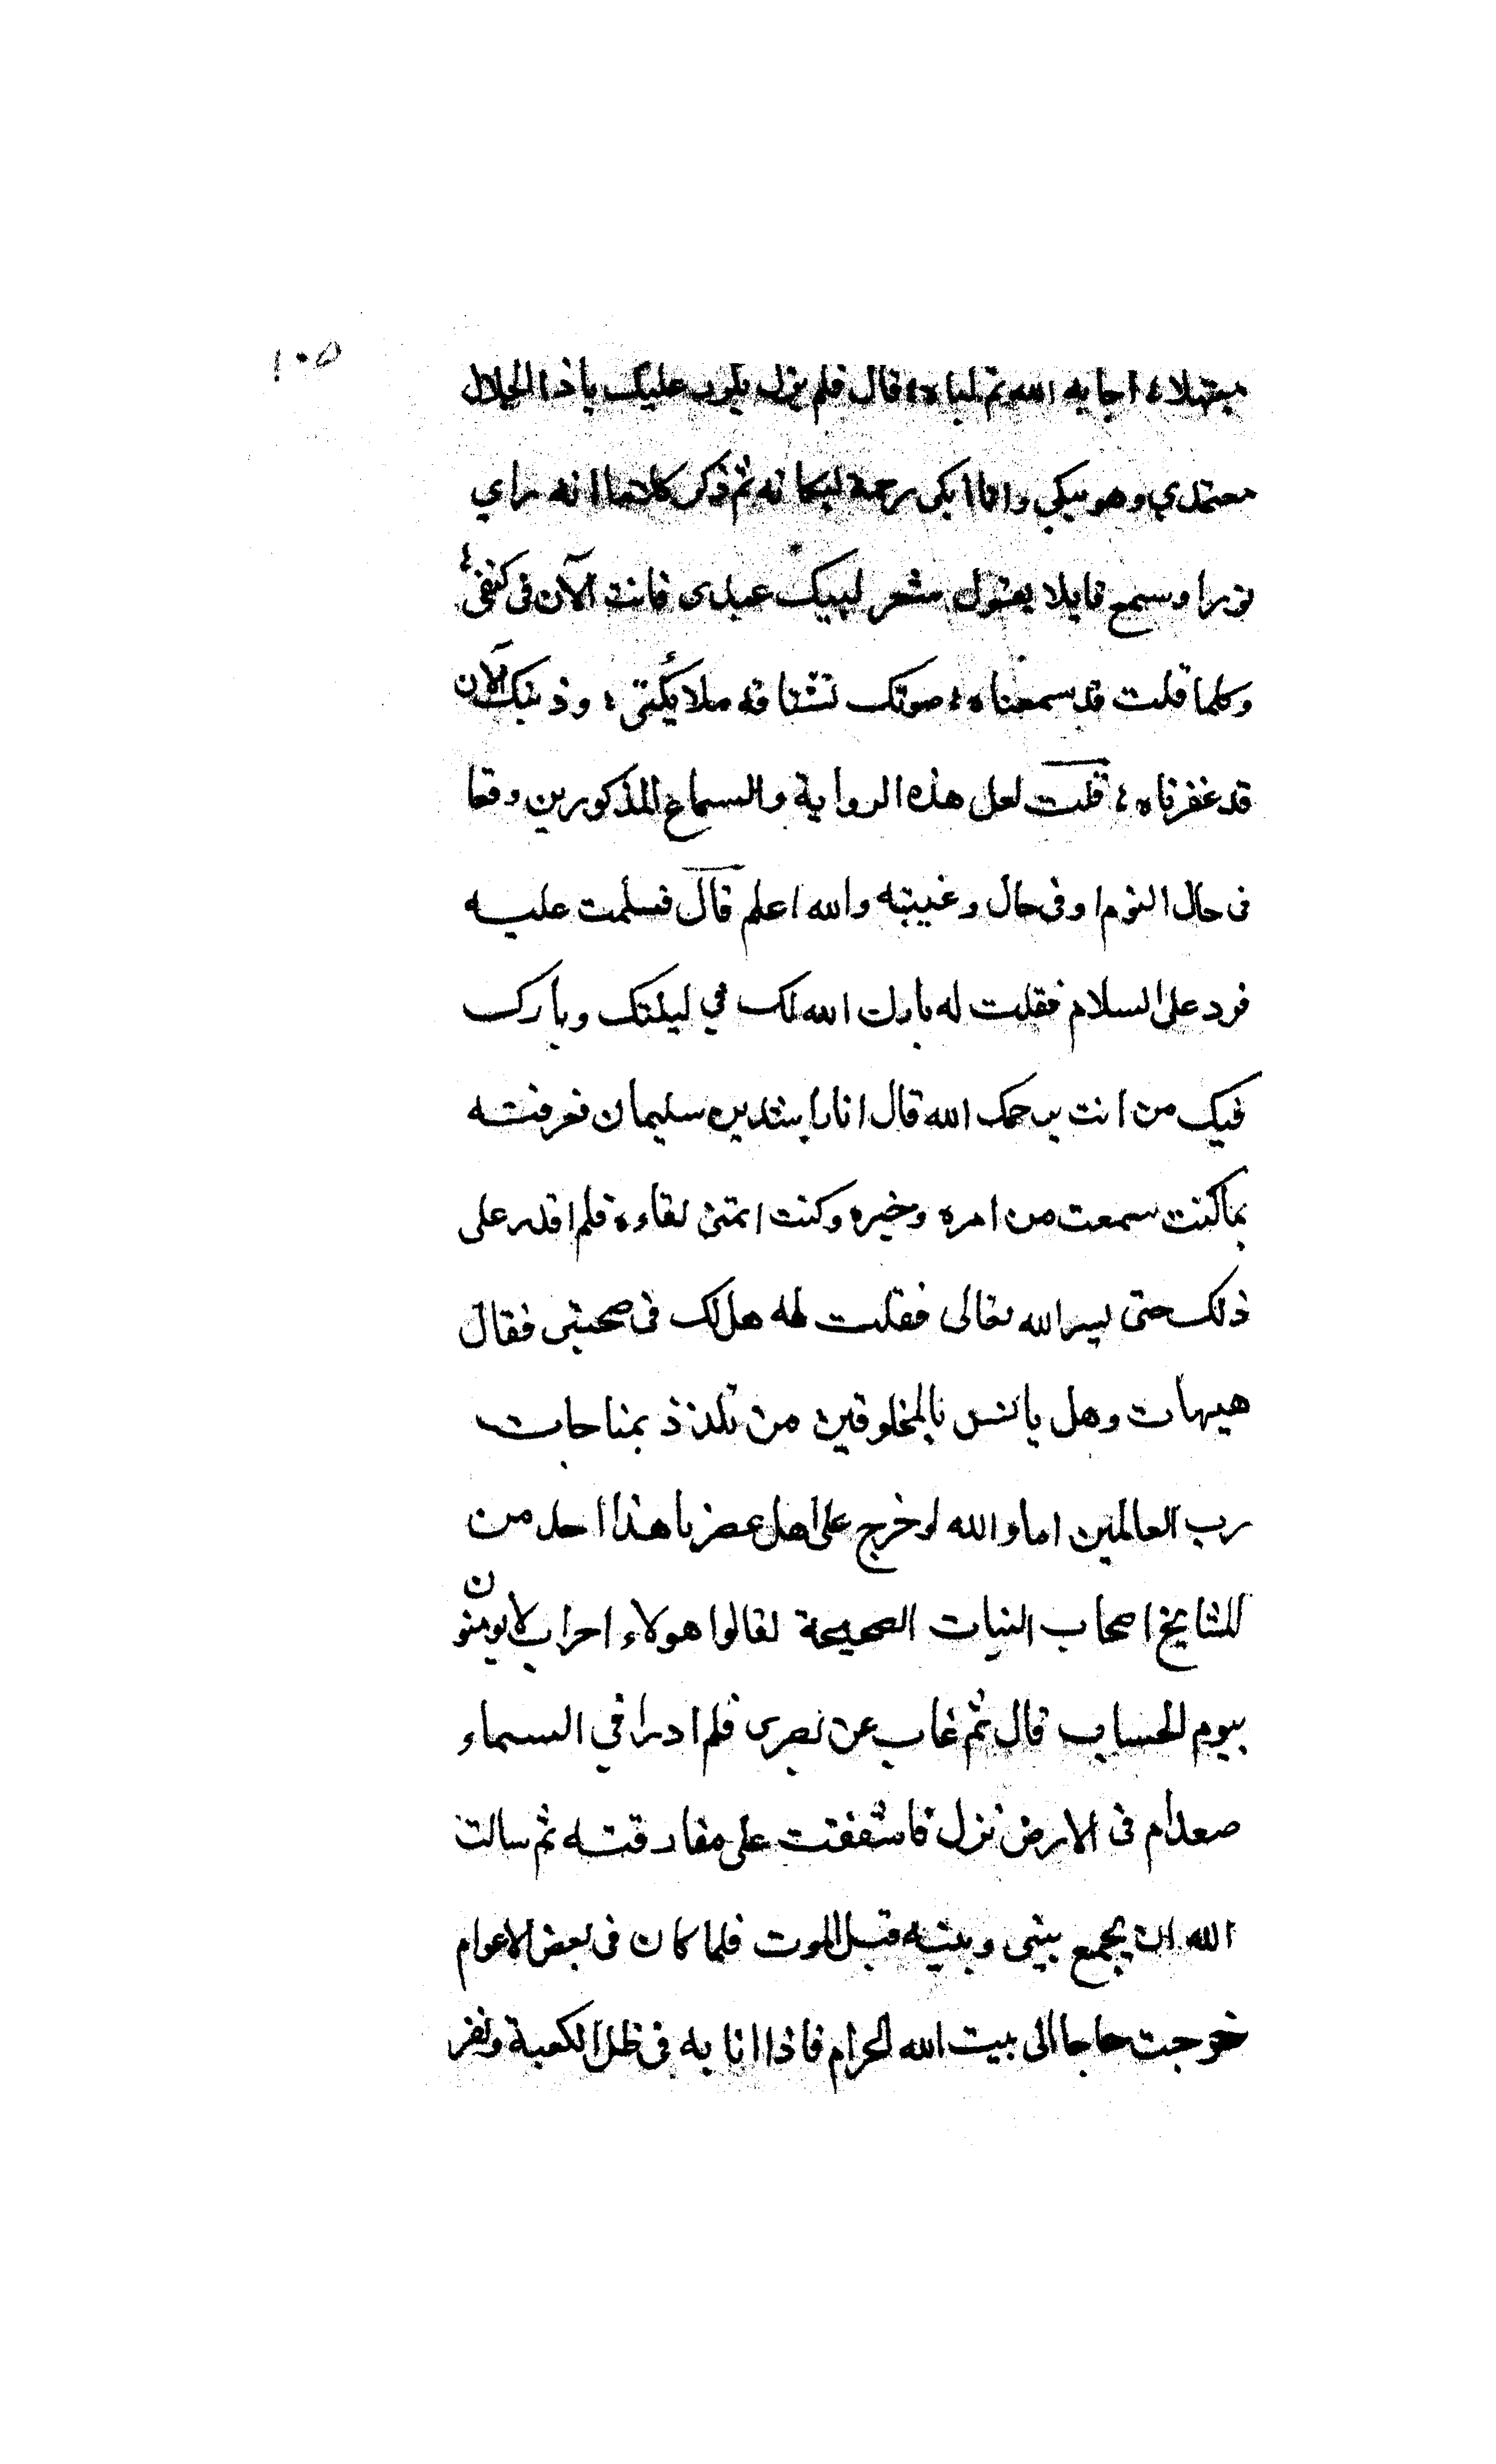 ١٠٥
مبتهلا ؛ اجابه الله ثم لباه ؛ قال فلم يزل يكرر عليك ياذا الجلال
معتمدي وهو يبكي وانا ابكى رحمة لبكائه ثم ذكر كلاما انه راي
نورا وسمع قايلا يقول شعر لبيك عبدى فانت الآن فى كنفى ؛
وكلما قلت قد سمعناه ؛ صوتك تشتاقه ملايكتى ؛ وذنبك الآن
قد غفرناه ؛ قلت لعل هذه الرواية والسماع المذكورين وقعا
فى حال النوم او فى حال وغيبته والله اعلم قال فسلمت عليه
فرد على السلام فقلت له بارك الله لك في ليلتك وبارك
فيك من انت يرحمك الله قال انا راشد بن سليمان فعرفته
بما كنت سمعت من امره وخيره وكنت اتمنى لقاءه فلم اقدر على
ذلك حتى يسر الله تعالى فقلت له هل لك فى صحبتى فقال
هيهات وهل يانس بالمخلوقين من تلذذ بمناجات
رب العالمين اما والله لو خرج على اهل عصرنا هذا احد من
المشايخ اصحاب النيات الصحيحة لقالوا هولاء احراب لا يومنون
بيوم الحساب قال ثم غاب عن بصرى فلم ادر افي السماء
صعد ام فى الارض نزل فاشفقت على مفارقته ثم سالت
الله ان يجمع بينى وبينه قبل الموت فلما كان فى بعض الاعوام
خرجت حاجا الى بيت الله الحرام فاذا انا به فى ظل الكعبة ونفر